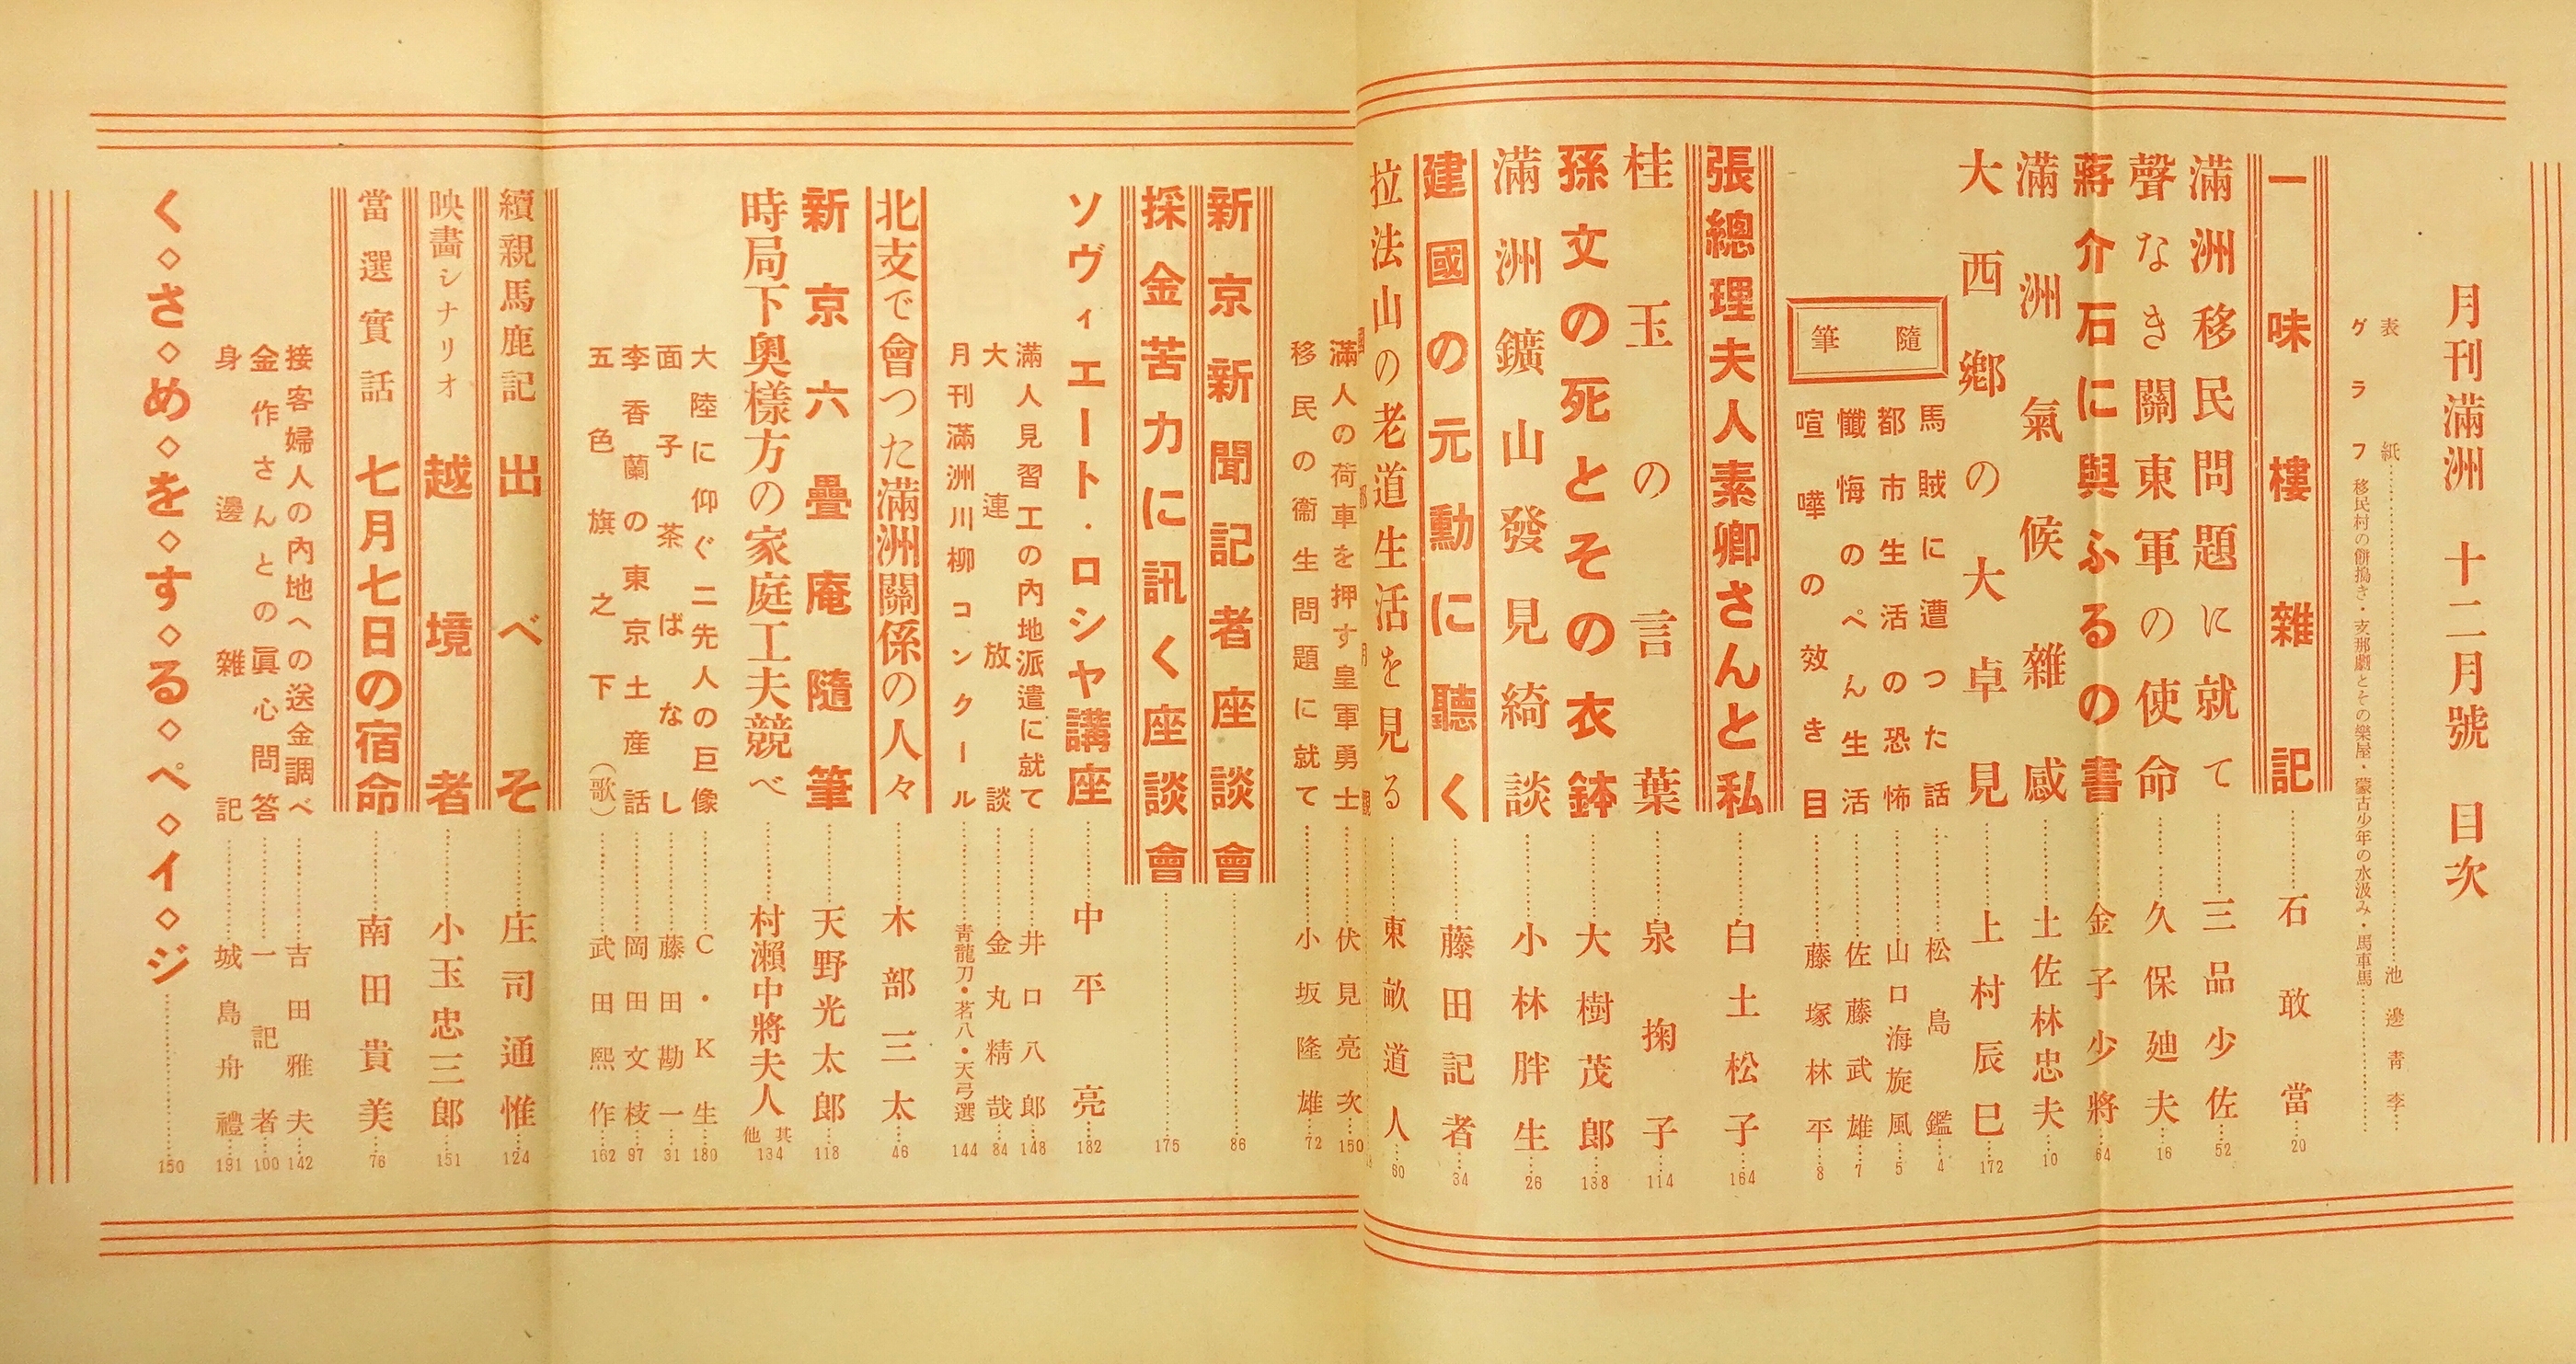 月刊滿洲 十二月號 目次
表紙……池邊青李…
グラフ 移民村の餅搗き・支那劇とその樂屋・蒙古少年の水汲み・馬車馬……
一味樓雜記……石敢當…20
滿洲移民問題に就て……三品少佐…52
聲なき關東軍の使命……久保廸夫…16
蔣介石に與ふるの書……金子少將…64
滿洲氣候雜感……土佐林忠夫…10
大西鄉の大卓見……上村辰巳…172
隨筆
馬賊に遭つた話……松島鑑…4
都市生活の恐怖……山口海旋風…5
懺悔のぺん生活……佐藤武雄…7
喧嘩の效き目……藤塚林平…8
張總理夫人素卿さんと私……白土松子…164
桂玉の言葉……泉掬子…114
孫文の死とその衣鉢……大樹茂郎…138
滿洲鑛山發見綺談……小林胖生…26
建國の元勳に聽く……藤田記者…34
拉法山の老道生活を見る……東畝道人…60
滿人の荷車を押す皇軍勇士……伏見亮次…150
移民の衞生問題に就て……小坂隆雄…72
新京新聞記者座談會……86
採金苦力に訊く座談會……175
ソヴィエート・ロシヤ講座……中平亮…182
滿人見習工の內地派遣に就て……井口八郎…148
大連放談……金丸精哉…84
月刊滿洲川柳コンクール……靑龍刀・茗八・天弓選 144
北支で會つた滿洲關係の人々……木部三太…46
新京六疊庵隨筆……天野光太郎…118
時局下奥樣方の家庭工夫競べ……村瀨中將夫人 其他 134
大陸に仰ぐ二先人の巨像……C・K生…180
面子茶ばなし……藤田勘一…31
李香蘭の東京土産話……岡田文枝…97
五色旗之下(歌)……武田熙作…162
續親馬鹿記 出べそ……庄司通惟…124
映畵シナリオ 越境者……小玉忠三郎…151
當選實話 七月七日の宿命……南田貴美…76
接客婦人の內地への送金調べ……吉田雅夫…142
金作さんとの眞心問答……一記者…100
身邊雜記……城島舟禮…191
く◇さ◇め◇を◇す◇る◇ペ◇イ◇ジ……150